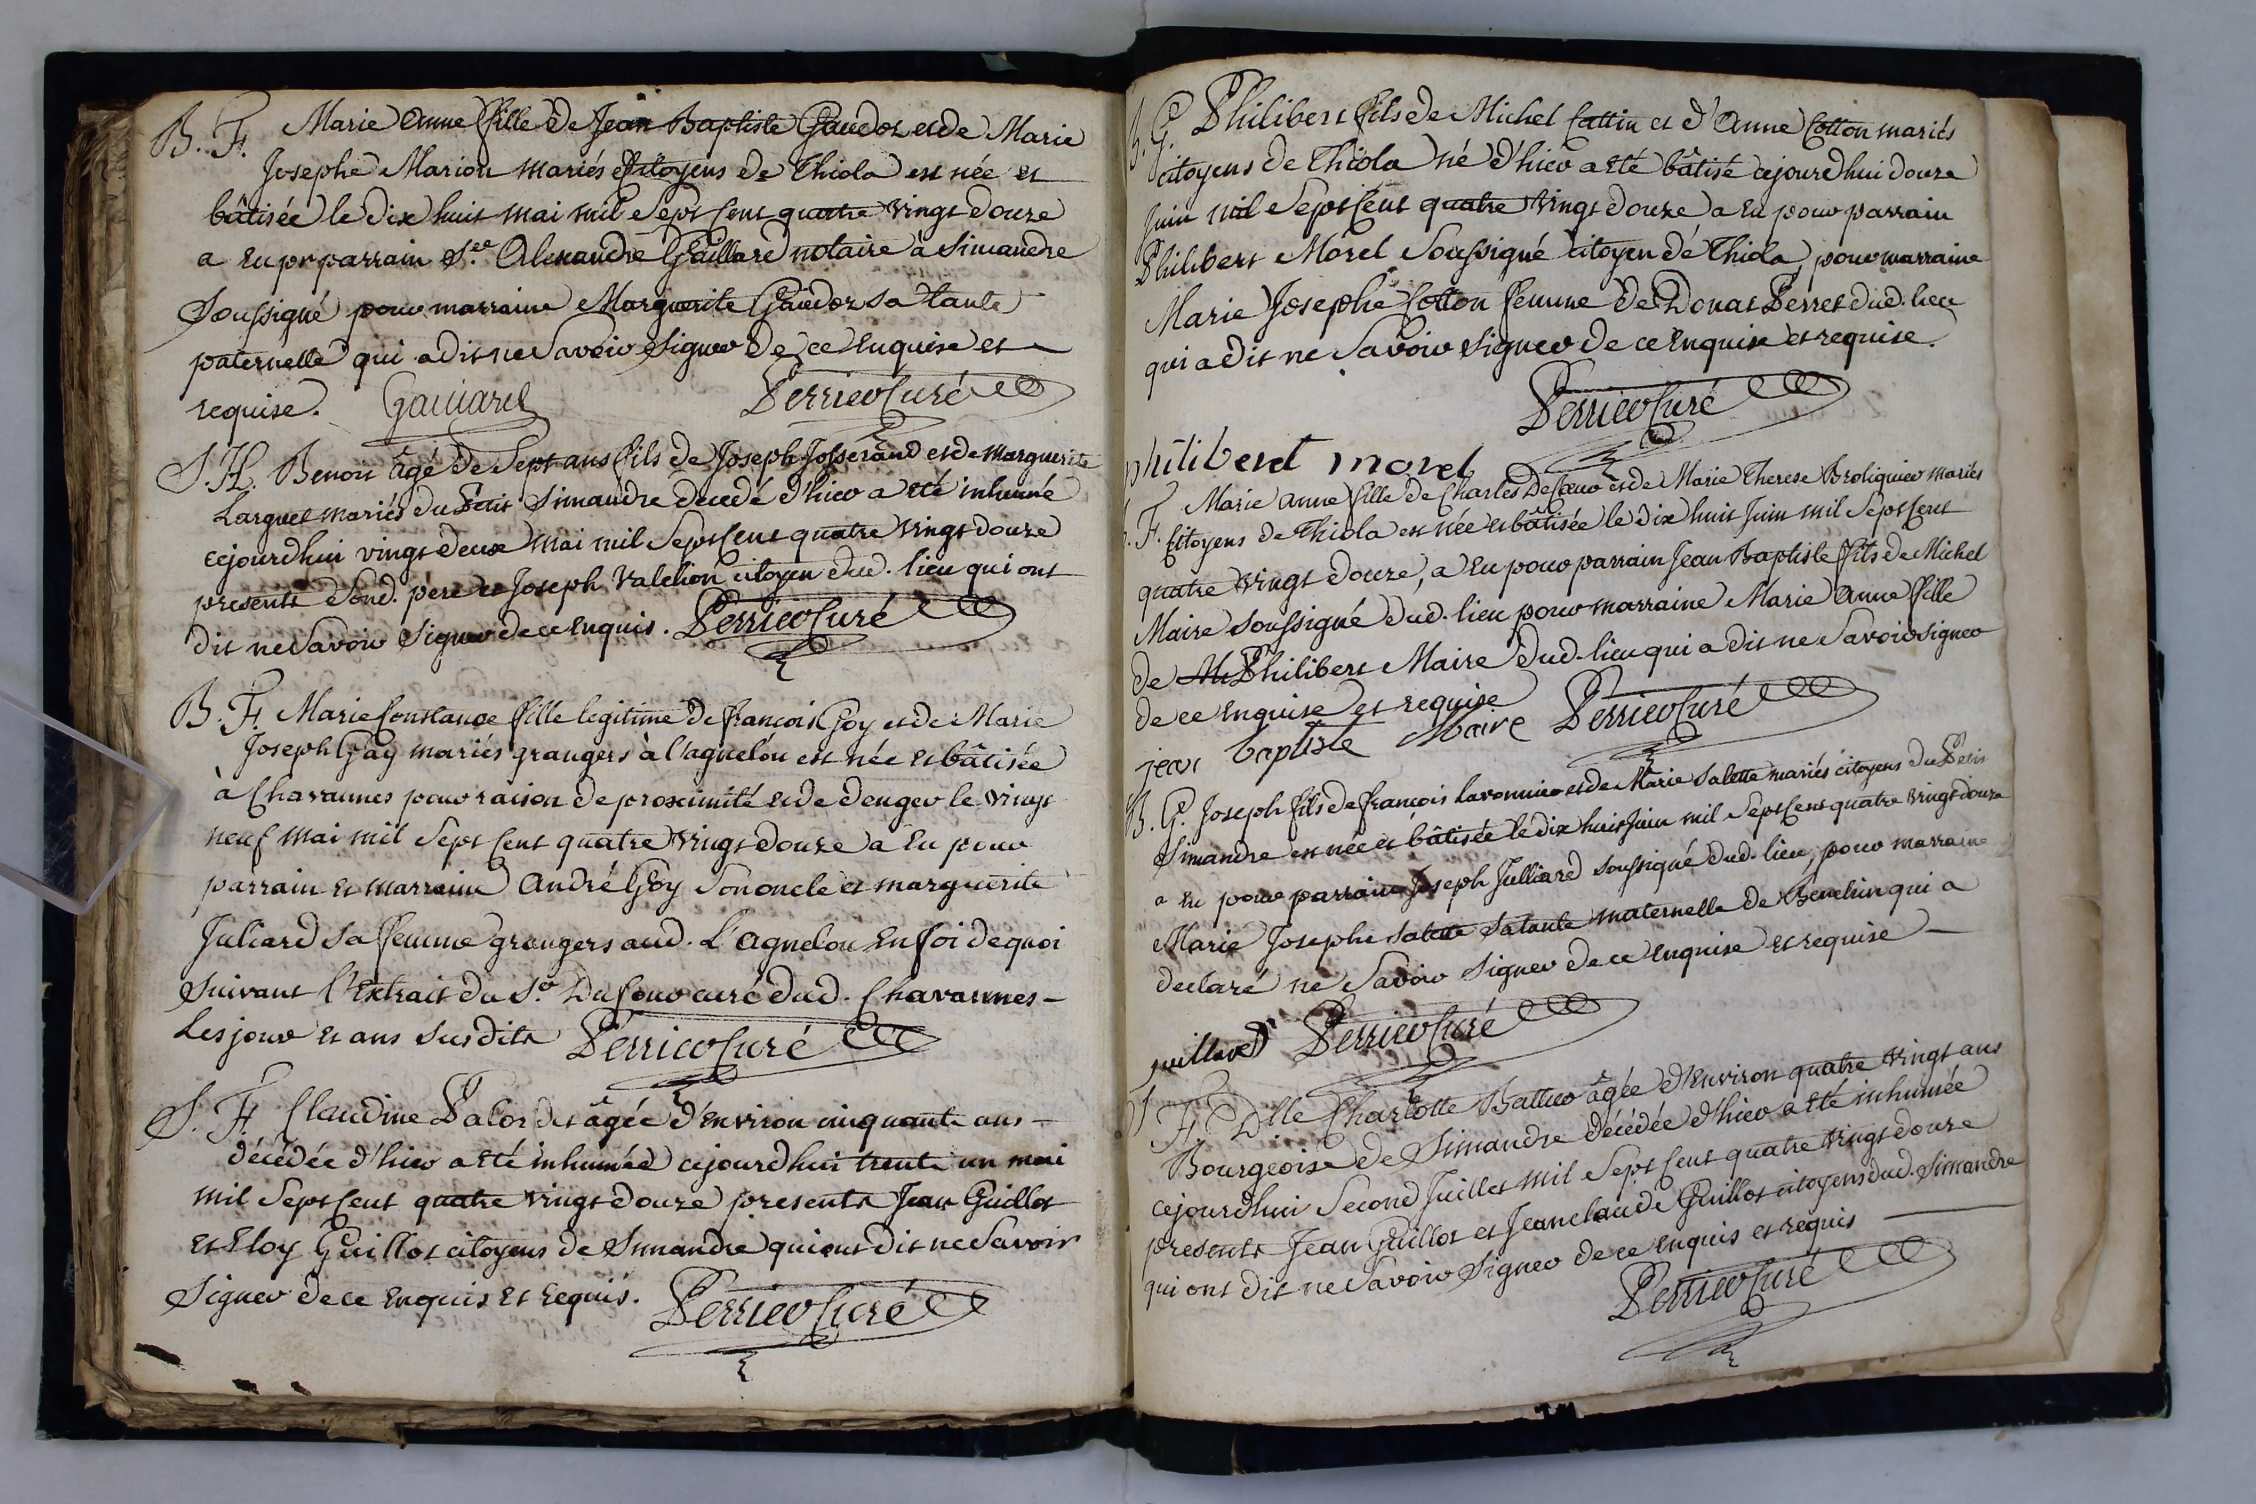 B. F. Marie Anne fille de Jean Baptiste Gaudoz et de Marie
Josephe Marion mariés Citoyens de Thiola est née et
bâtisée le dix huit mai mil Sept Cent quatre vingt douze
a eu pr parrain Sr. Alexandre Gaillard notaire à Simandre
Soussigné pour marraine Marguerite Gaudoz sa tante
paternelle qui a dit ne Savoir signer de ce Enquise et
requise. Gaillard Perrier Curé
S. H. Benoit âgé de Sept ans fils de Joseph Josserand et de Marguerite
Larguet mariés du Petit Simandre decedé d'hier a eté inhumé
cejourdhui vingt deux mai mil Sept Cent quatre vingt douze
presents Sond. pere et Joseph Valchon citoyen dud. lieu qui ont
dit ne Savoir Signer de ce enquis. Perrier Curé
B. F. Marie Constance fille legitime de francois Goy et de Marie
Joseph Gay mariés grangers à l'agnelou est née et bâtisée
à Chavannes pour raison de proximité et de denger le vingt
neuf mai mil Sept Cent quatre vingt douze a Eu pour
parrain et marraine André Goy Son oncle et marguerite
Juliard Sa femme grangers aud. L'agnelou En foi de quoi
Suivant l'Extrait du Sr. Dufour curé dud. Chavannes
Les jour et ans Susdits Perrier Curé
S. F. Claudine Palordet âgée d'Environ cinquante ans
décédée d'hier a eté inhumée cejourdhui trente un mai
mil Sept Cent quatre vingt douze presents Jean Guillot
et Eloy Guillot citoyens de Simandre qui ont dit ne Savoir
Signer de ce Enquis et Requis. Perrier Curé
B. G. Philibert fils de Michel Cattin et d'Anne Cotton mariés
citoyens de Thiola né d'hier a eté bâtisé cejourdhui douze
Juin mil Sept Cent quatre vingt douze a Eu pour parrain
Philibert Morel Soussigné citoyen de Thiola, pour marraine
Marie Josephe Cotton femme de Donat Perret dud. lieu
qui a dit ne Savoir signer de ce Enquise et requise.
Perrier Curé
philibert morel
B. F. Marie Anne fille de Charles De Coeur et de Marie Therese Broliquier mariés
Citoyens de Thiola est née et bâtisée le dix huit Juin mil Sept Cent
quatre vingt douze, a Eu pour parrain Jean Baptiste fils de Michel
Maire Soussigné dud. lieu pour marraine Marie Anne fille
de Philibert Maire dud. lieu qui a dit ne Savoir signer
de ce Enquise et requise Perrier Curé
jean baptiste Maire
B. G. Joseph fils de françois Lavonnier et de Marie Salette mariés citoyens du Petit
Simandre est née et bâtisée le dix huit Juin mil Sept Cent quatre vingt douze
a Eu pour parrain Joseph Julliard soussigné dud. lieu, pour marraine
Marie Josephe Salette Sa tante maternelle de Beuchin qui a
declaré ne Savoir signer de ce Enquise et requise
juillard Perrier Curé
S. F. Dlle Charlotte Battier âgée d'Environ quatre vingt ans
Bourgeoise de Simandre décédée d'hier a eté inhumée
cejourdhui Second Juillet mil Sept Cent quatre vingt douze
presents Jean Guillot et Jean claude Guillot citoyens dud. Simandre
qui ont dit ne Savoir signer de ce enquis et requis
Perrier Curé